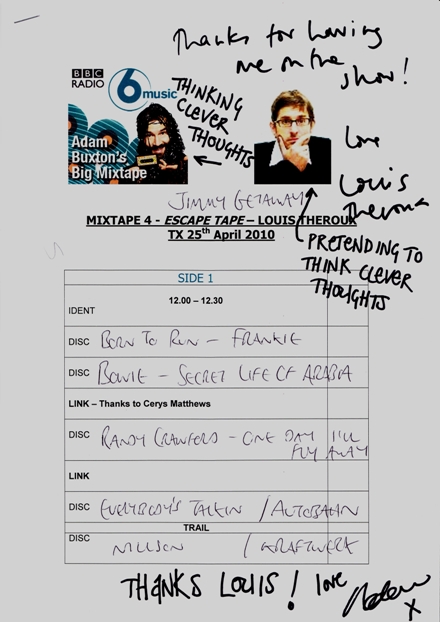 Thanks for having
me on the
show!
Love
Louis
Theroux
BBC
RADIO
6 music
Adam
Buxton's
Big Mixtape
THINKING
CLEVER
THOUGHTS
JIMMY GETAWAY
MIXTAPE 4 - ESCAPE TAPE – LOUIS THEROUX
TX 25th April 2010
PRETENDING TO
THINK CLEVER
THOUGHTS
SIDE 1
12.00 – 12.30
IDENT
DISC BORN TO RUN – FRANKIE
DISC BOWIE – SECRET LIFE OF ARABIA
LINK – Thanks to Cerys Matthews
DISC RANDY CRAWFORD - ONE DAY I'LL
FLY AWAY
LINK
DISC EVERYBODY'S TALKIN / AUTOBAHN
TRAIL
DISC NILLSON / KRAFTWERK
THANKS LOUIS! love
Adam
X